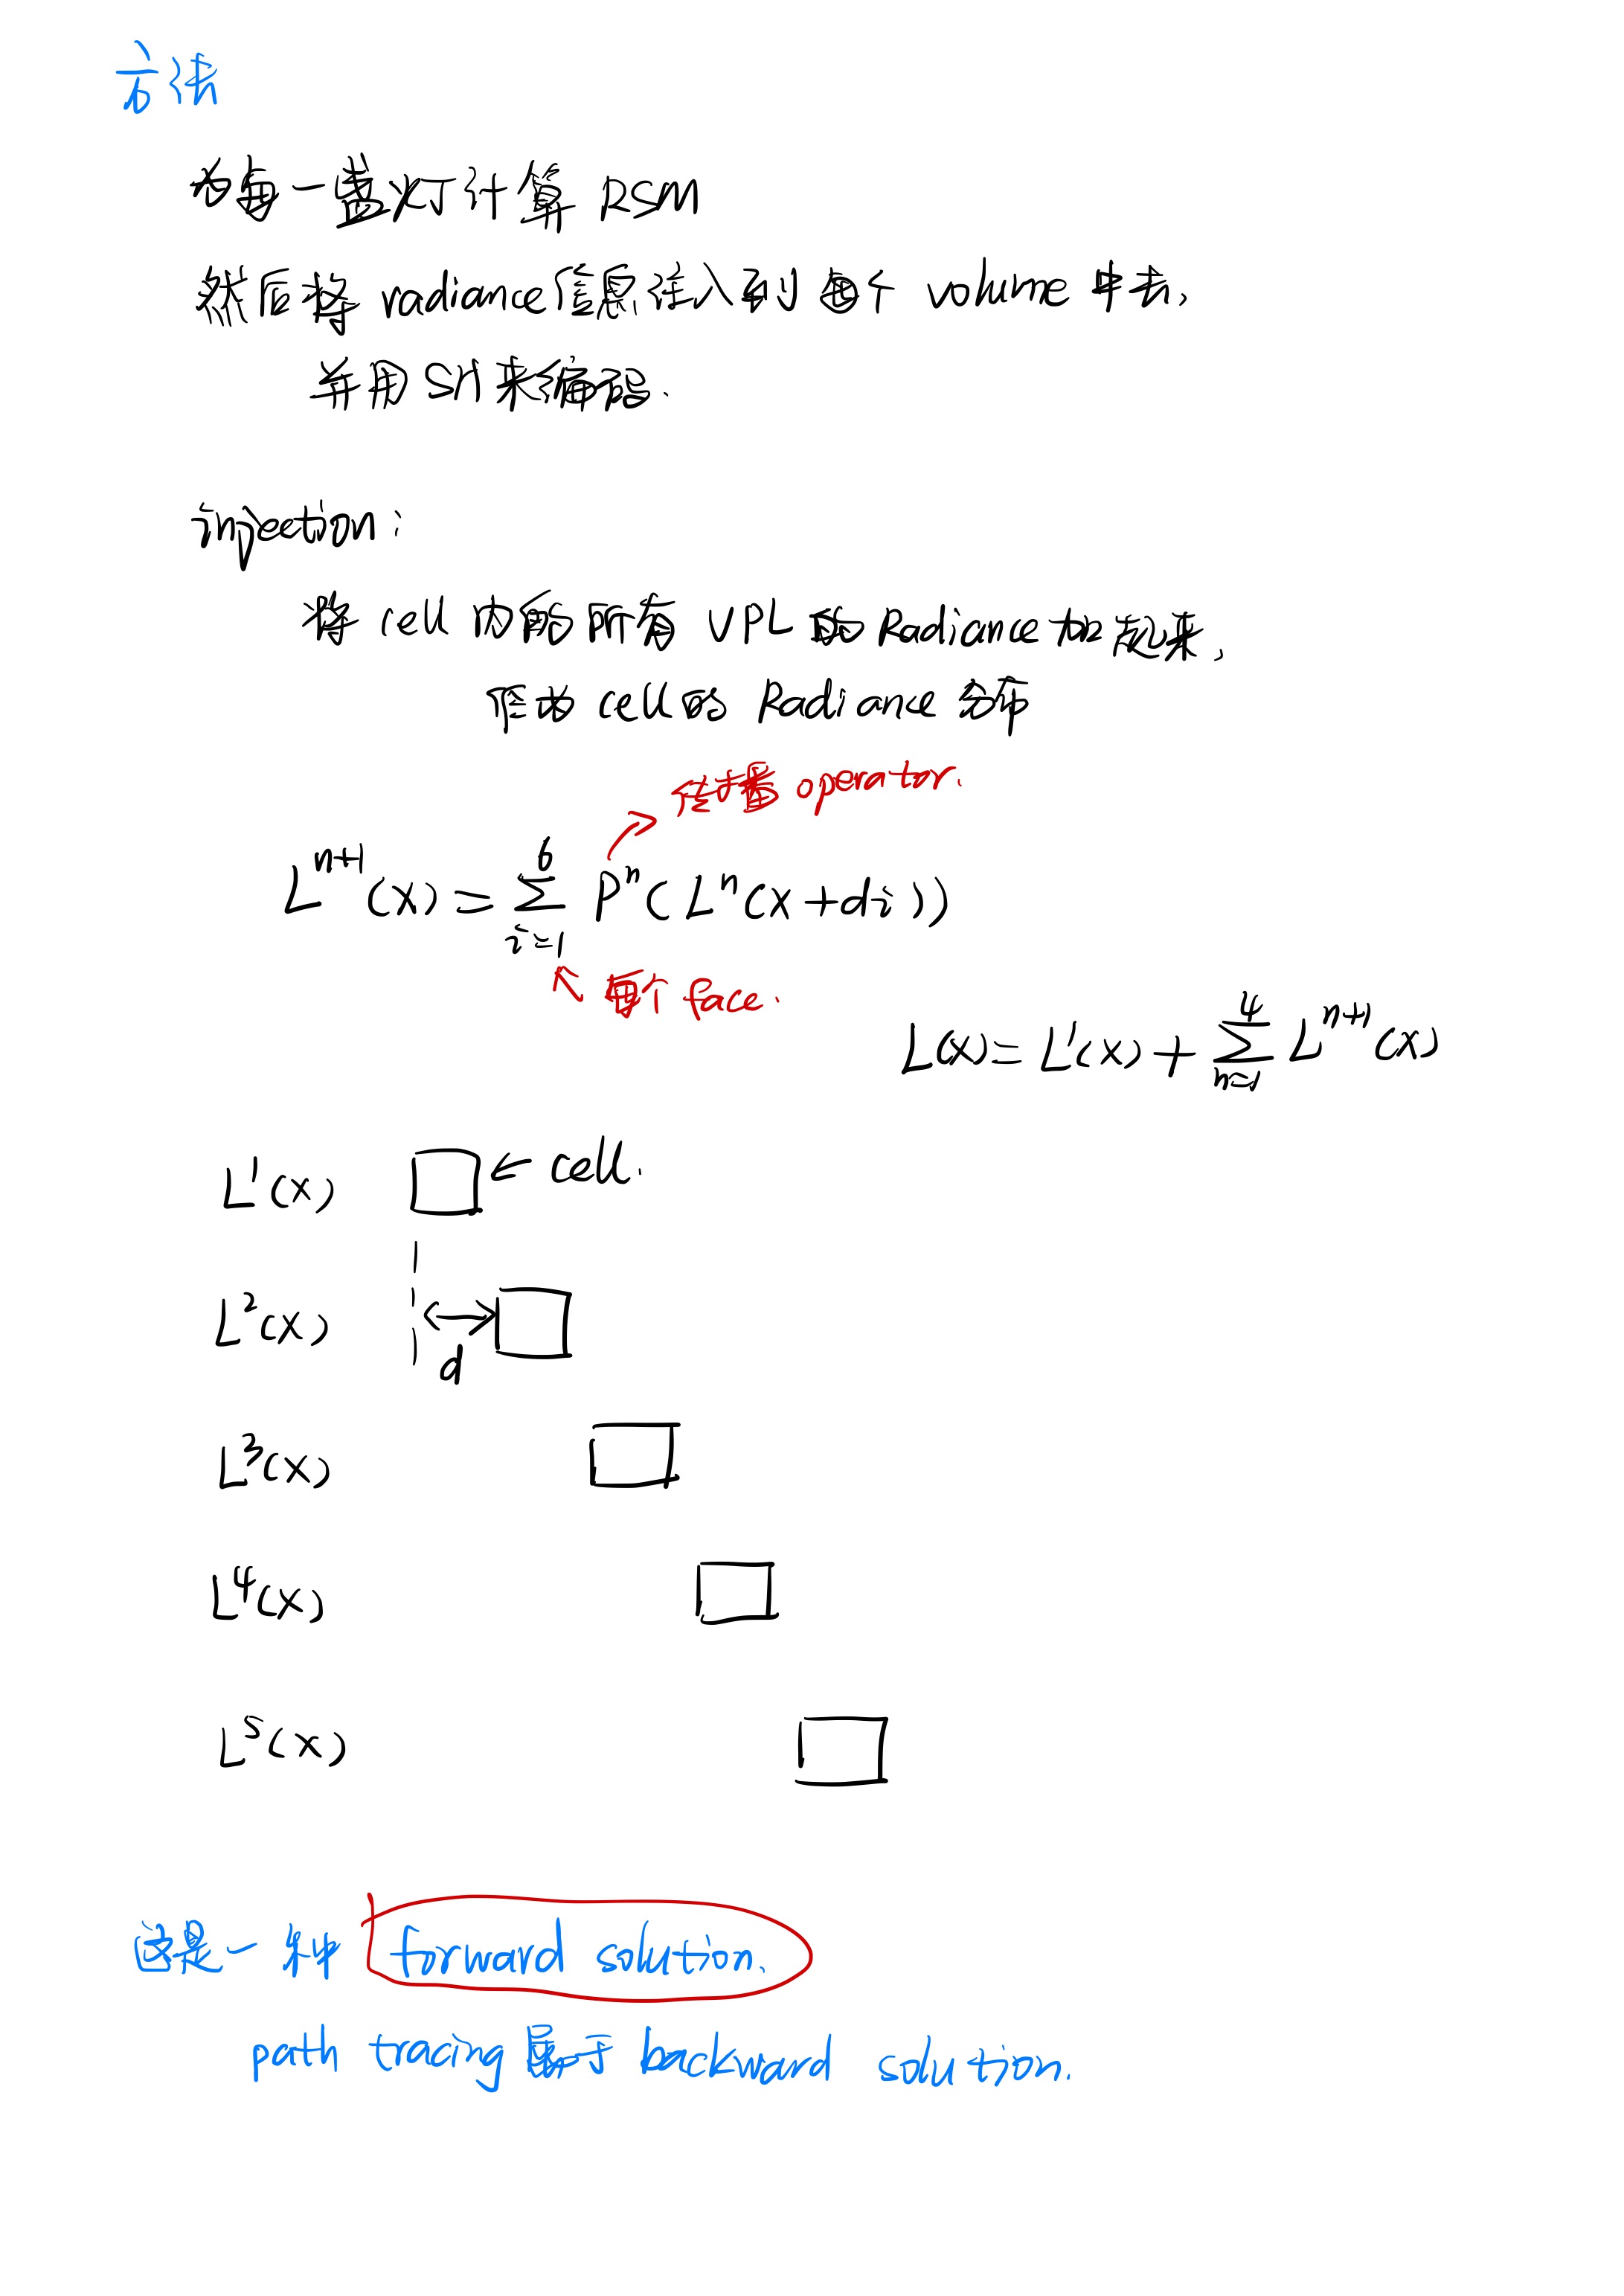 方法
为每一盏灯计算 RSM
然后将 radiance信息注入到每个 volume 中去,
并用SH来编码.
injection:
将 cell 内的所有 VPL 的 Radiance 加起来,
作为 cell的 Radiance 分布
传播 operator.
L^{n+1}(x) = \sum_{i=1}^{6} P^n(L^n(x+di))
↖ 每个 face.
L(x) = L^1(x) + \sum_{n=1}^{4} L^{n+1}(x)
L^1(x) ← cell.
L^2(x)
d
L^3(x)
L^4(x)
L^5(x)
这是一种 forward solution.
path tracing 属于 backward solution.